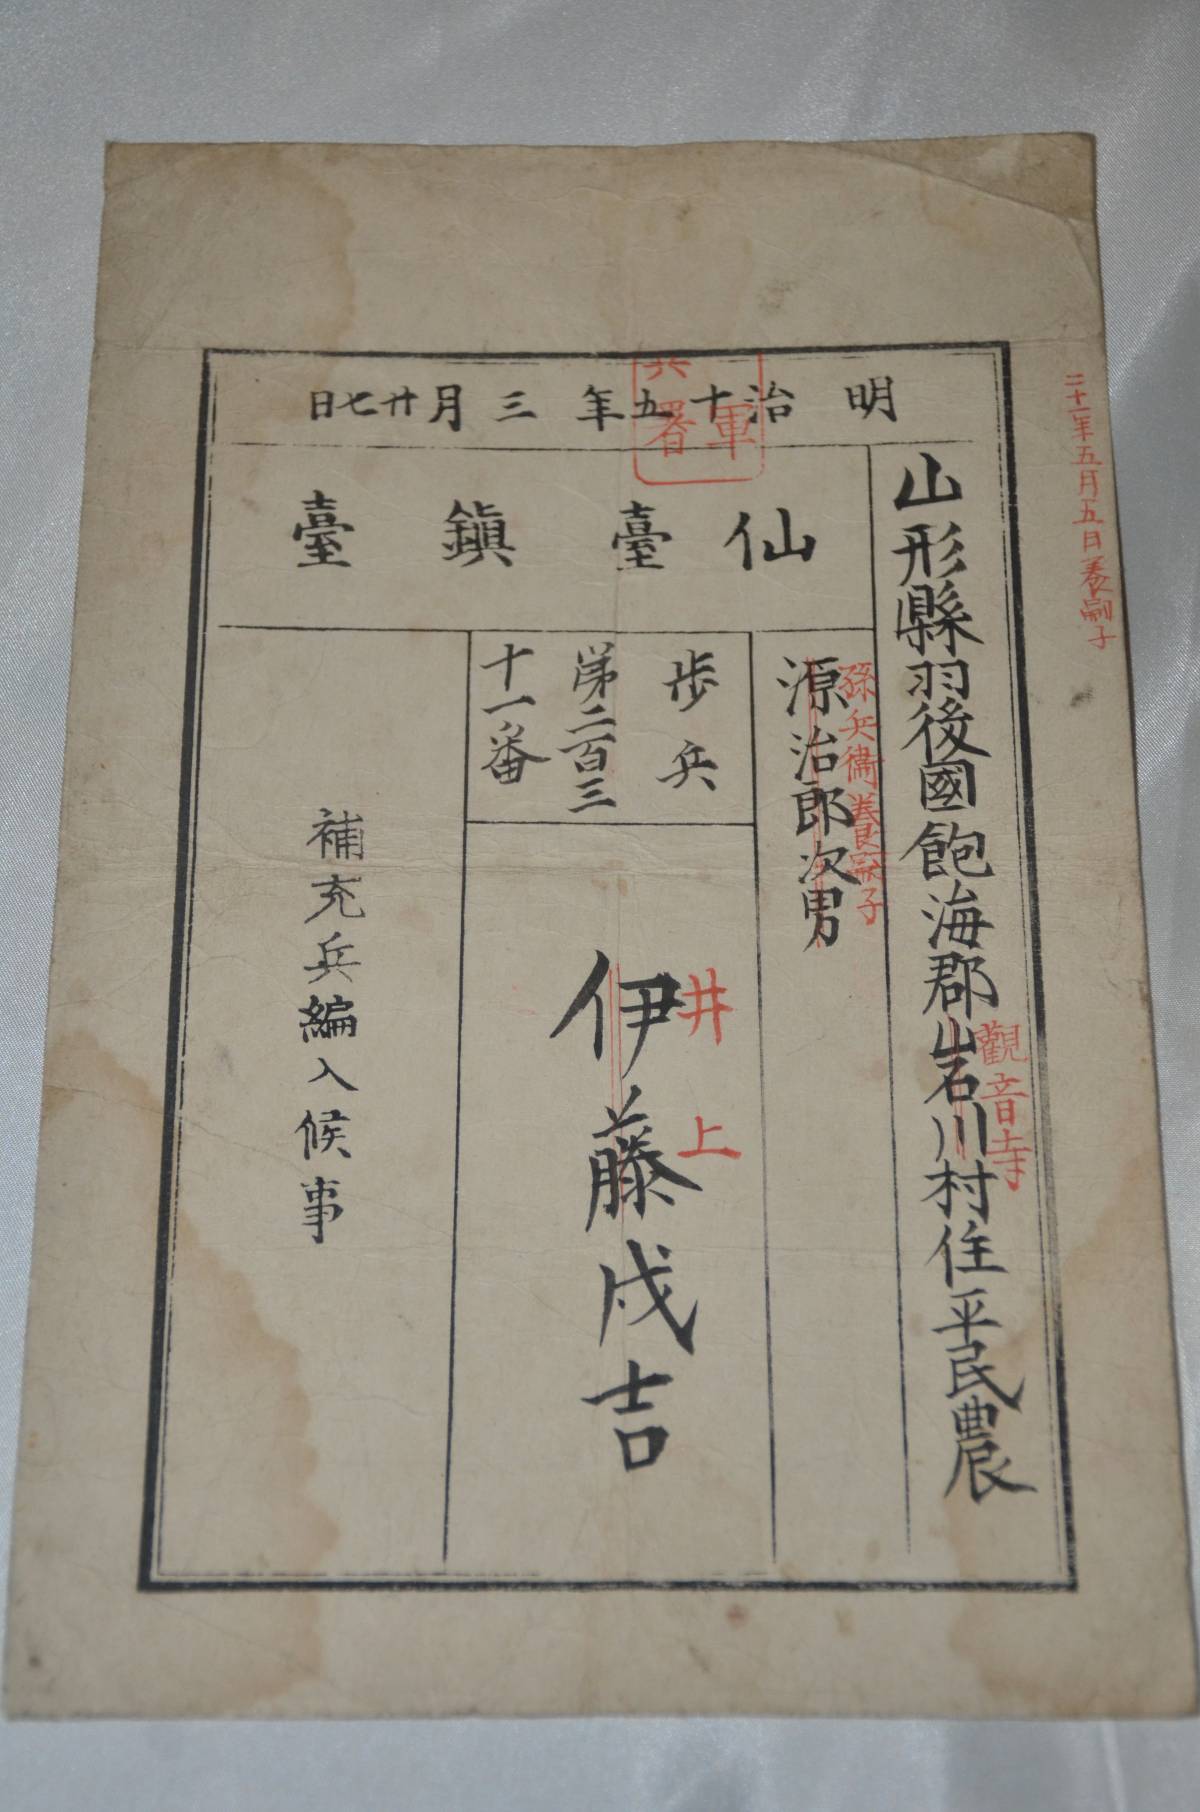 二十一年五月五日養嗣子
明治十五年三月廿七日
兵
軍署
仙臺鎮臺
山形縣羽後國飽海郡岩川村住平民農
觀音寺
孫兵衛養嗣子
源治郎次男
歩兵
第二百三
十一番
井上
伊藤戌吉
補充兵編入候事